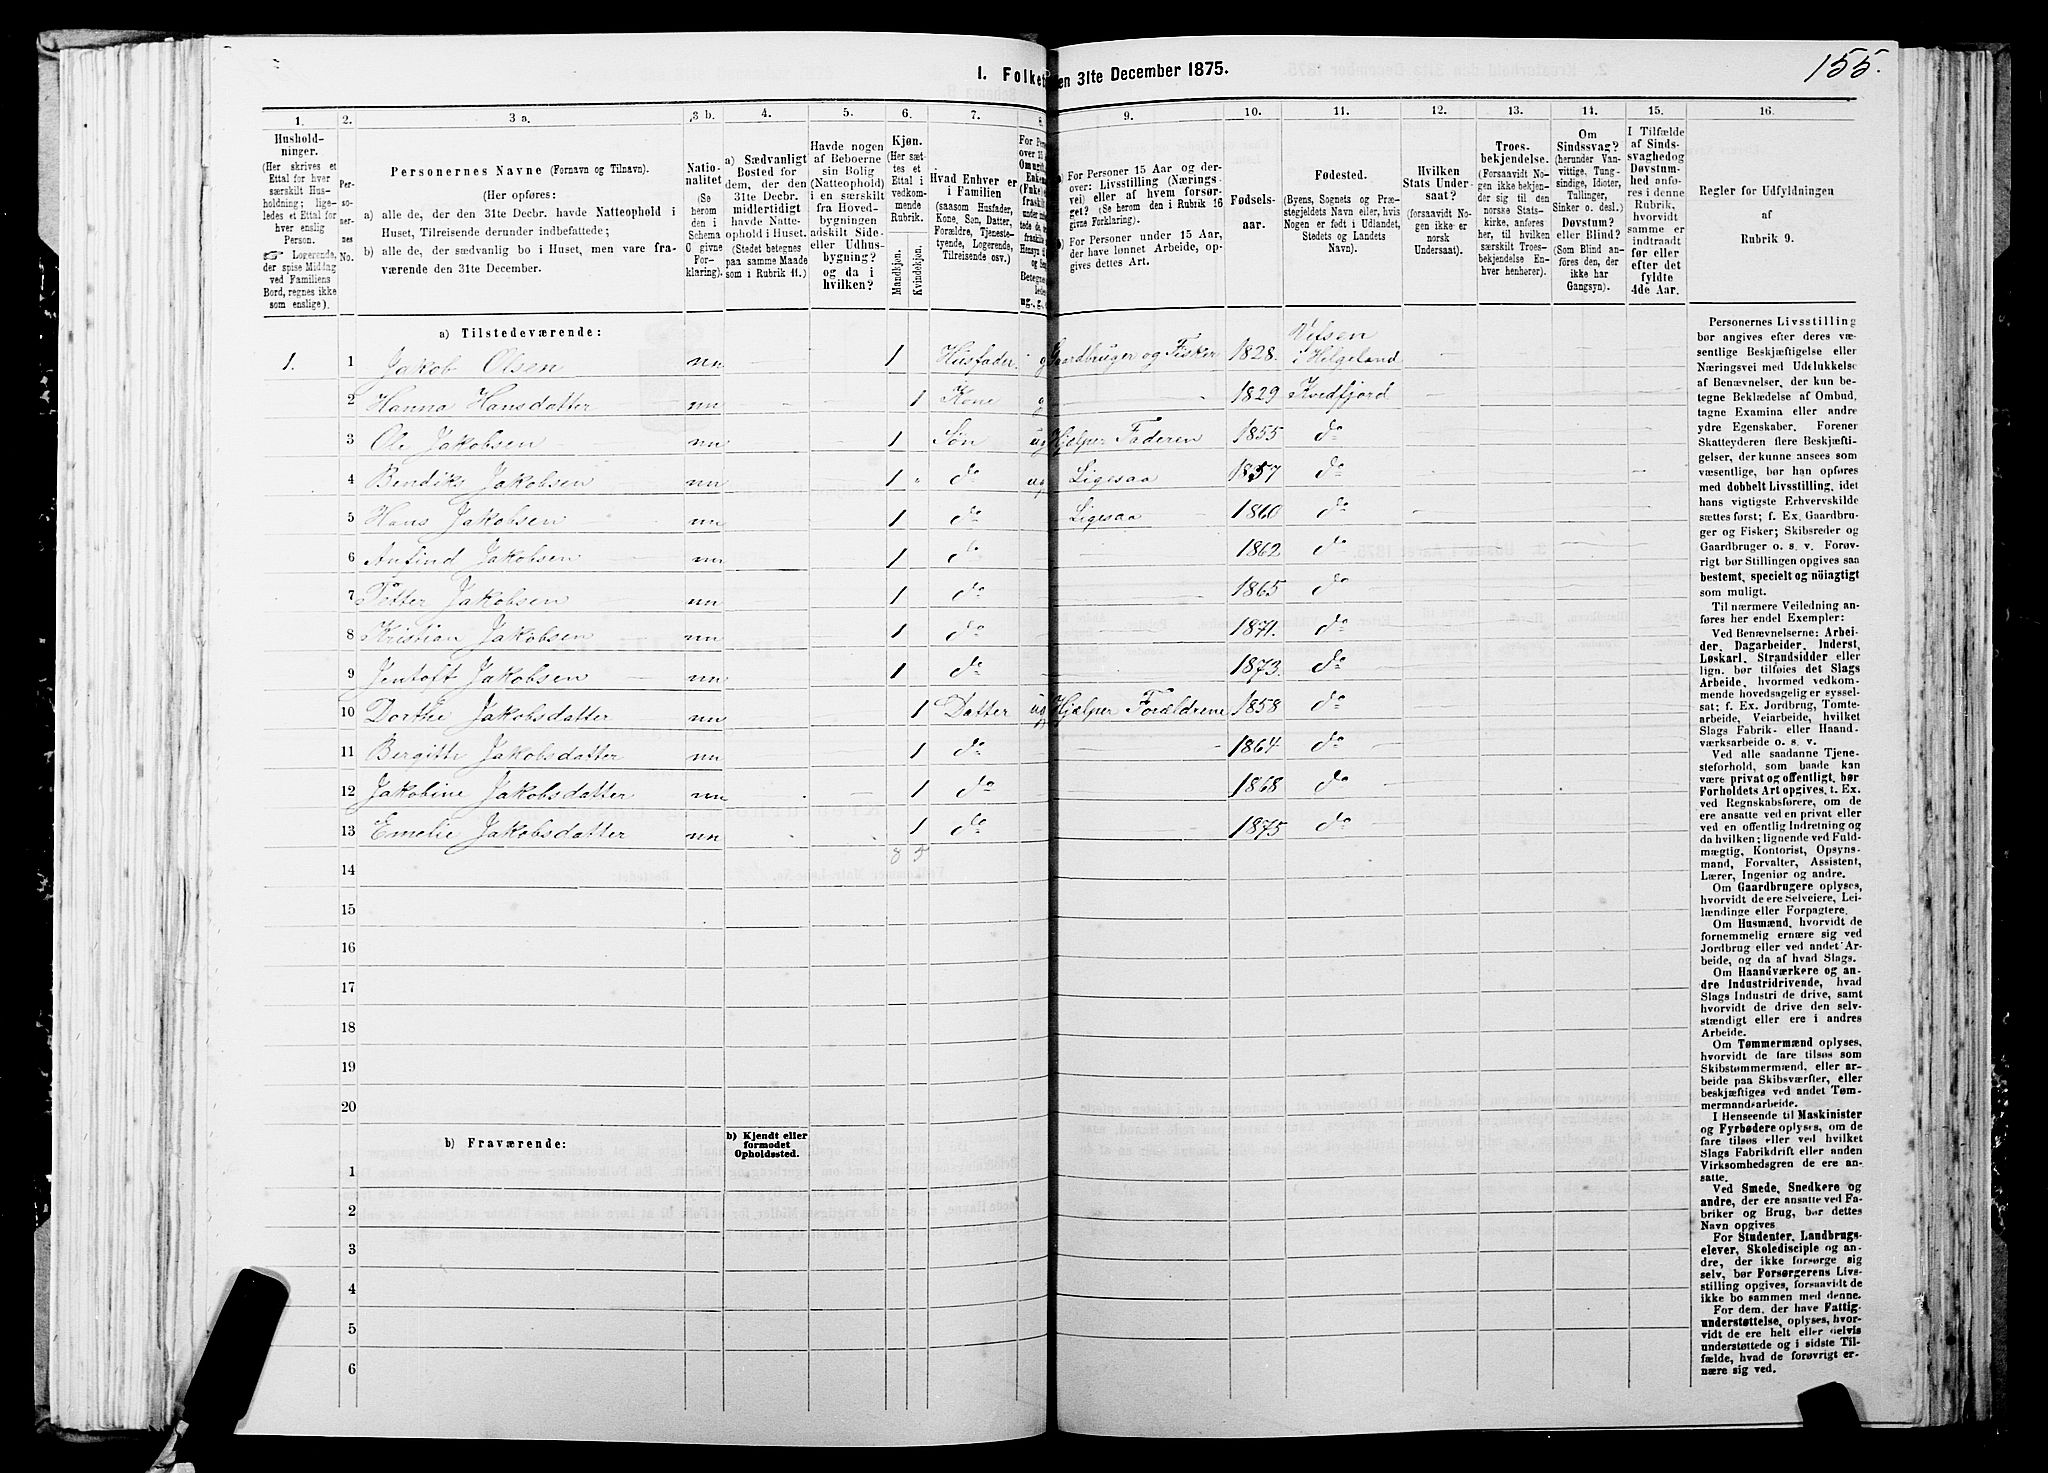 155.
1. Folket en 31te December 1875.
1. 2. 3 a. 3 b. 4. 5. 6. 7. 8. 9. 10. 11. 12. 13. 14. 15. 16.
Hushold-
ninger.
(Her skrives et
Ettal for hver
særskilt Hus-
holdning; lige-
ledes et Ettal for
hver enslig
Person.
☞ Logerende,
der spise Middag
ved Familiens
Bord, regnes ikke
som enslige).
Per-
so-
ner-
nes
No.
Personernes Navne (Fornavn og Tilnavn).
(Her opføres:
a) alle de, der den 31te Decbr. havde Natteophold i
Huset, Tilreisende derunder indbefattede;
b) alle de, der sædvanlig bo i Huset, men vare fra-
værende den 31te December.
Natio-
nalitet
(Se
herom
den i
Schema
O givne
For-
klaring).
a) Sædvanligt
Bosted for
dem, der den
31te Decbr.
midlertidigt
havde Natte-
ophold i Huset.
(Stedet betegnes
paa samme Maade
som i Rubrik 11.)
Havde nogen
af Beboerne
sin Bolig
(Natteophold)
i en særskilt
fra Hoved-
bygningen
adskilt Side-
eller Udhus-
bygning?
og da i
hvilken?
Kjøn.
(Her sæt-
tes et
Ettal i
vedkom-
mende
Rubrik.
Mandkjøn.
Kvindekjøn.
Hvad Enhver er
i Familien
(saasom Husfader,
Kone, Søn, Datter,
Forældre, Tjeneste-
tyende, Logerende,
Tilreisende osv.)
a) For Personer 15 Aar og der-
over: Livsstilling (Nærings-
vei) eller af hvem forsør-
get? (Se herom den i Rubrik 16
givne Forklaring).
b) For Personer under 15 Aar,
der have lønnet Arbeide, op-
gives dettes Art.
Fødsels-
aar.
Fødested.
(Byens, Sognets og Præ-
stegjeldets Navn eller, hvis
Nogen er født i Udlandet,
Stedets og Landets
Navn).
Hvilken
Stats Under-
saat?
(forsaavidt No-
gen ikke er
norsk
Undersaat).
Troes-
bekjendelse.
(Forsaavidt No-
gen ikke bekjen-
der sig til den
norske Stats-
kirke, anføres
her, til hvilken
særskilt Troes-
bekjendelse En-
hver henhører).
Om
Sindssvag?
(herunder Van-
vittige, Tung-
sindige, Idioter,
Tullinger,
Sinker o. desl.)
Døvstum?
eller Blind?
(Som Blind an-
føres den, der
ikke har
Gangsyn).
I Tilfælde
af Sinds-
svaghed og
Døvstum-
hed anfø-
res i denne
Rubrik,
hvorvidt
samme er
indtraadt
før eller
efter det
fyldte
4de Aar.
Regler for Udfyldningen
af
Rubrik 9.
a) Tilstedeværende:
1. 1 Jakob Olsen nn 1 Husfader g Gaardbruger og Fisker 1828. i Helgeland
2 Hanna Hansdatter nn 1 Kone g 1829 Kvedfjord
3 Ole Jakobsen nn 1 Søn ug Hjelper Faderen 1855 do
4 Bendiks Jakobsen nn 1 do ug Ligesaa 1857 do
5 Hans Jakobsen nn 1 do Ligesaa 1860 do
6 Anfind Jakobsen nn 1 do 1862 do
7 Petter Jakobsen nn 1 do 1865 do
8 Kristian Jakobsen nn 1 do 1871. do
9 Jentoft Jakobsen nn 1 do 1873. do
10 Dorthe Jakobsdatter nn 1 Datter ug Hjælper Forældrene 1858 do
11 Bergitte Jakobsdatter nn 1 do 1864 do
12 Jakobine Jakobsdatter nn 1 do 1868 do
13 Emelie Jakobsdatter nn 1 do 1875 do
8 5
14
15
16
17
18
19
20
b) Fraværende:
b) Kjendt eller
formodet
Opholdssted.
1
2
3
4
5
6
Personernes Livsstilling
bør angives efter deres væ-
sentlige Beskjæftigelse eller
Næringsvei med Udelukkelse
af Benævnelser, der kun be-
tegne Beklædelse af Ombud,
tagne Examina eller andre
ydre Egenskaber. Forener
Skatteyderen flere Beskjæfti-
gelser, der kunne ansees som
væsentlige, bør han opføres
med dobbelt Livsstilling, idet
hans vigtigste Erhvervskilde
sættes først; f. Ex. Gaardbru-
ger og Fisker; Skibsreder og
Gaardbruger o. s. v. Forøv-
rigt bør Stillingen opgives saa
bestemt, specielt og nöiagtigt
som muligt.
Til nærmere Veiledning an-
føres her endel Exempler:
Ved Benævnelserne: Arbei-
der, Dagarbeider, Inderst,
Løskarl, Strandsidder eller
lign. bør tilføies det Slags
Arbeide, hvormed vedkom-
mende hovedsagelig er syssel-
sat; f. Ex. Jordbrug, Tomte-
arbeide, Veiarbeide, hvilket
Slags Fabrik- eller Haand-
værksarbeide o. s. v.
Ved alle saadanne Tjene-
steforhold, som baade kan
være privat og offentligt, bør
Forholdets Art opgives, t. Ex.
ved Regnskabsførere, om de
ere ansatte ved en privat eller
ved en offentlig Indretning og
da hvilken; lignende ved Fuld-
mægtig, Kontorist, Opsyns-
mand, Forvalter, Assistent,
Lærer, Ingeniør og andre.
Om Gaardbrugere oplyses,
hvorvidt de ere Selveiere, Lei-
lændinge eller Forpagtere.
Om Husmænd, hvorvidt de
fornemmelig ernære sig ved
Jordbrug eller ved andet Ar-
beide, og da af hvad Slags.
Om Haandværkere og an-
dre Industridrivende, hvad
Slags Industri de drive, samt
hvorvidt de drive den selv-
stændigt eller ere i andres
Arbeide.
Om Tømmermænd oplyses,
hvorvidt de fare tilsøs som
Skibstømmermænd, eller ar-
beide paa Skibsværfter, eller
beskjæftiges ved andet Tøm-
mermandsarbeide.
I Henseende til Maskinister
og Fyrbødere oplyses, om de
fare tilsøs eller ved hvilket
Slags Fabrikdrift eller anden
Virksomhedsgren de ere an-
satte.
Ved Smede, Snedkere og
andre, der ere ansatte ved Fa-
briker og Brug, bør dettes
Navn opgives.
For Studenter, Landbrugs-
elever, Skoledisciple og an-
dre, der ikke forsørge sig
selv, bør Forsørgerens Livs-
stilling opgives, forsaavidt de
ikke bo sammen med denne.
For dem, der have Fattig-
understøttelse, oplyses, hvor-
vidt de ere helt eller delvis
understøttede og i sidste Til-
fælde, hvad de forøvrigt er-
nære sig ved.